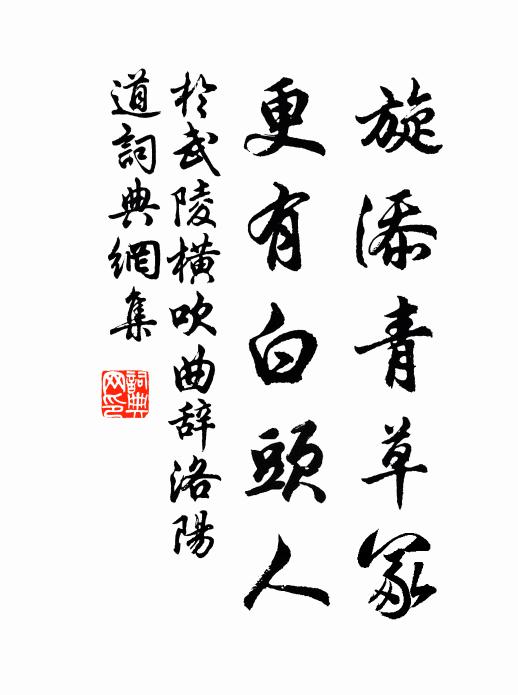 旋添青草冢
更有白頭人
於武陵橫吹曲辞洛陽
道詞典網集
詞典網印